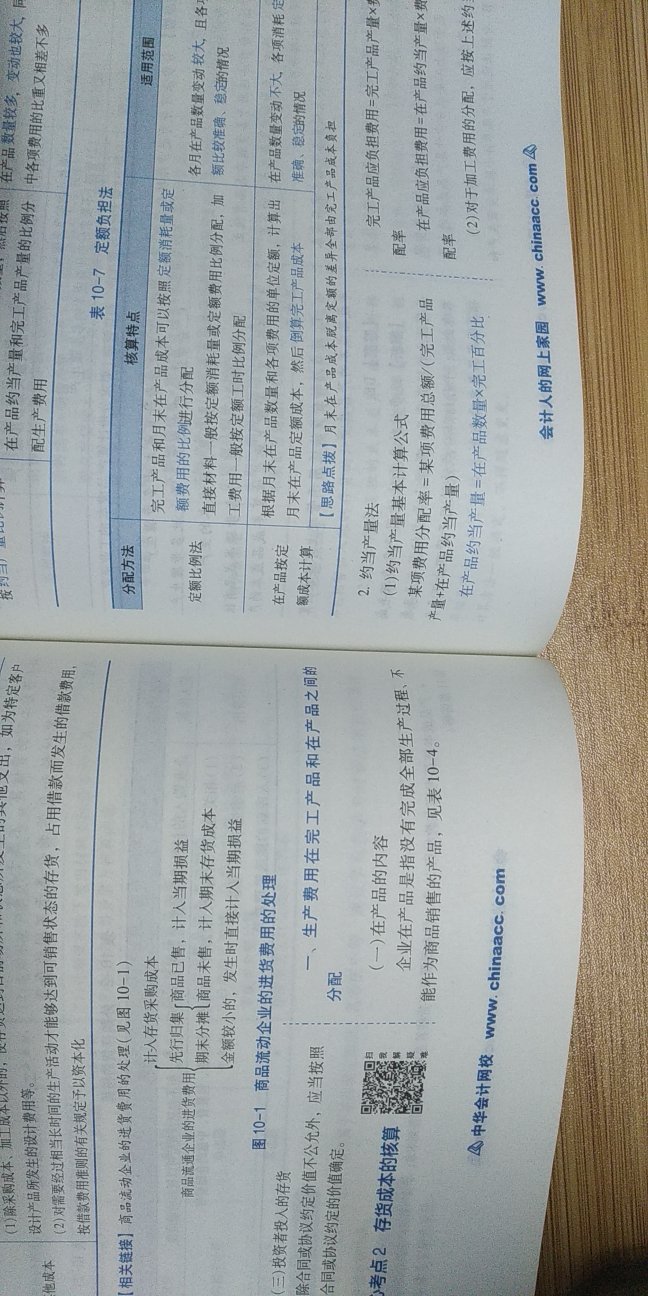 (1)除采购成本、加工成本以外的，使存货达到目前场所和状态所发生的其他支出，如为特定客户
设计产品所发生的设计费用等。
(2)对需要经过相当长时间的生产活动才能够达到可销售状态的存货，占用借款而发生的借款费用，
按借款费用准则的有关规定予以资本化
他成本
【相关链接】商品流动企业的进货费用的处理(见图 10-1)
商品流通企业的进货费用
计入存货采购成本
先行归集
期末分摊
商品已售，计入当期损益
商品未售，计入期末存货成本
金额较小的，发生时直接计入当期损益
图 10-1 商品流动企业的进货费用的处理
(三)投资者投入的存货
除合同或协议约定价值不公允外，应当按照
合同或协议约定的价值确定。
考点 2 存货成本的核算
扫
我
解
疑
难
一、生产费用在完工产品和在产品之间的
分配
(一)在产品的内容
企业在产品是指没有完成全部生产过程、不
能作为商品销售的产品，见表 10-4。
中华会计网校 www. chinaacc. com
在产品约当产量和完工产品产量的比例分
配生产费用
在产品数量较多，变动也较大，
中各项费用的比重又相差不多
表 10-7 定额负担法
分配方法 核算特点 适用范围
定额比例法
完工产品和月末在产品成本可以按照定额消耗量或定
额费用的比例进行分配
直接材料一般按定额消耗量或定额费用比例分配，加
工费用一般按定额工时比例分配
各月在产品数量变动较大，且各
额比较准确、稳定的情况
在产品按定
额成本计算
根据月末在产品数量和各项费用的单位定额，计算出
月末在产品定额成本，然后倒算完工产品成本
在产品数量变动不大，各项消耗定
准确、稳定的情况
【思路点拨】月末在产品成本脱离定额的差异全部由完工产品成本负担
2. 约当产量法
(1)约当产量基本计算公式
某项费用分配率=某项费用总额/(完工产品
产量+在产品约当产量)
在产品约当产量=在产品数量×完工百分比
完工产品应负担费用=完工产品产量×费
配率
在产品应负担费用=在产品约当产量×费
配率
(2)对于加工费用的分配，应按上述约
会计人的网上家园 www. chinaacc. com